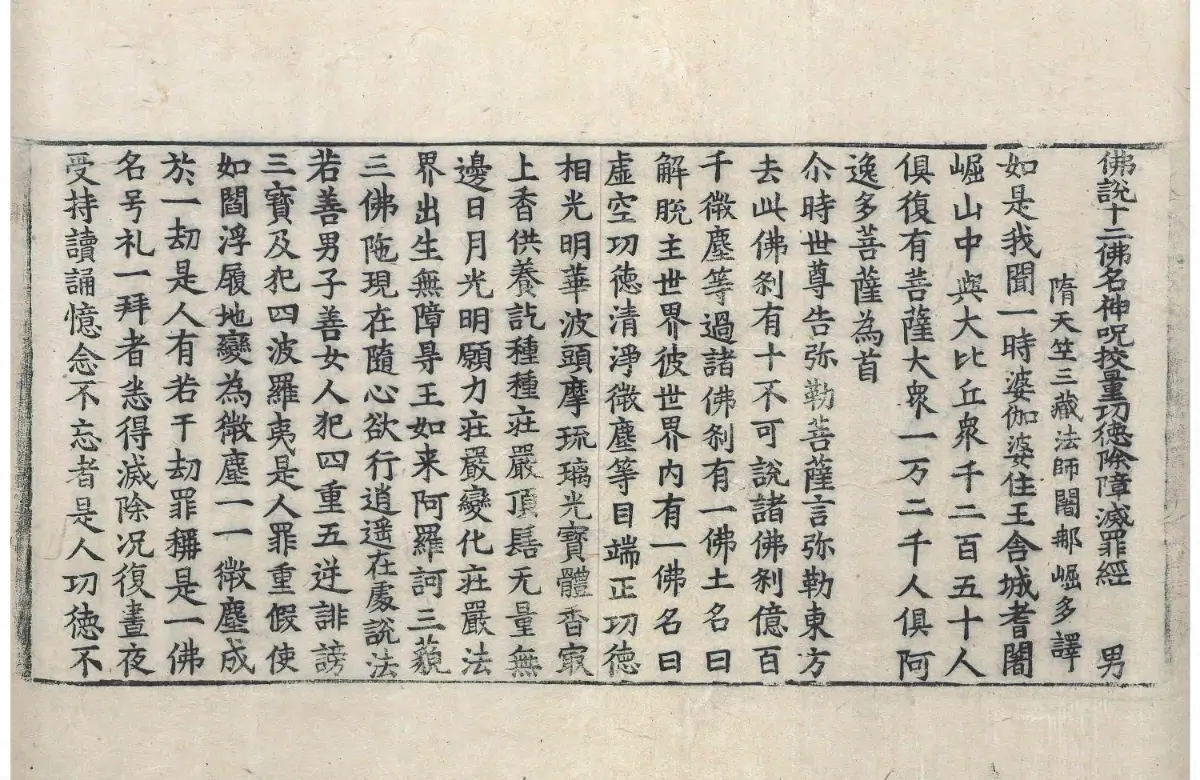 佛說十二佛名神呪挍量功德除障滅罪經 男
隋天竺三藏法師闍那崛多譯
如是我聞一時婆伽婆住王舍城耆闍
崛山中與大比丘衆千二百五十人
俱復有菩薩大衆一万二千人俱阿
逸多菩薩為首
尒時世尊告弥勒菩薩言弥勒東方
去此佛剎有十不可說諸佛剎億百
千微塵等過諸佛剎有一佛土名曰
解脫主世界彼世界內有一佛名曰
虛空功德清淨微塵等目端正功德
相光明華波頭摩琉璃光寶體香㝡
上香供養訖種種莊嚴頂髻无量無
邊日月光明願力莊嚴變化莊嚴法
界出生無障㝵王如来阿羅訶三藐
三佛陁現在隨心欲行逍遥在處說法
若善男子善女人犯四重五逆誹謗
三寶及犯四波羅夷是人罪重假使
如閻浮履地變為微塵一一微塵成
於一劫是人有若干劫罪稱是一佛
名号礼一拜者悉得滅除况復晝夜
受持讀誦憶念不忘者是人功德不